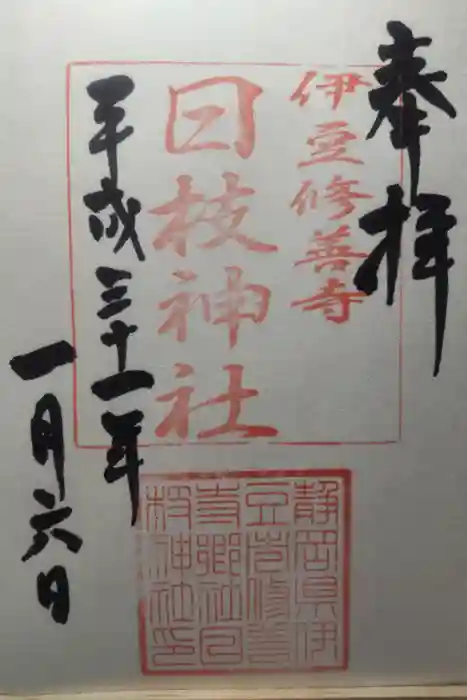 奉拝
伊豆修善寺
日枝神社
平成三十一年
一月六日
静岡県伊
豆修善
寺郷社日
枝神社印